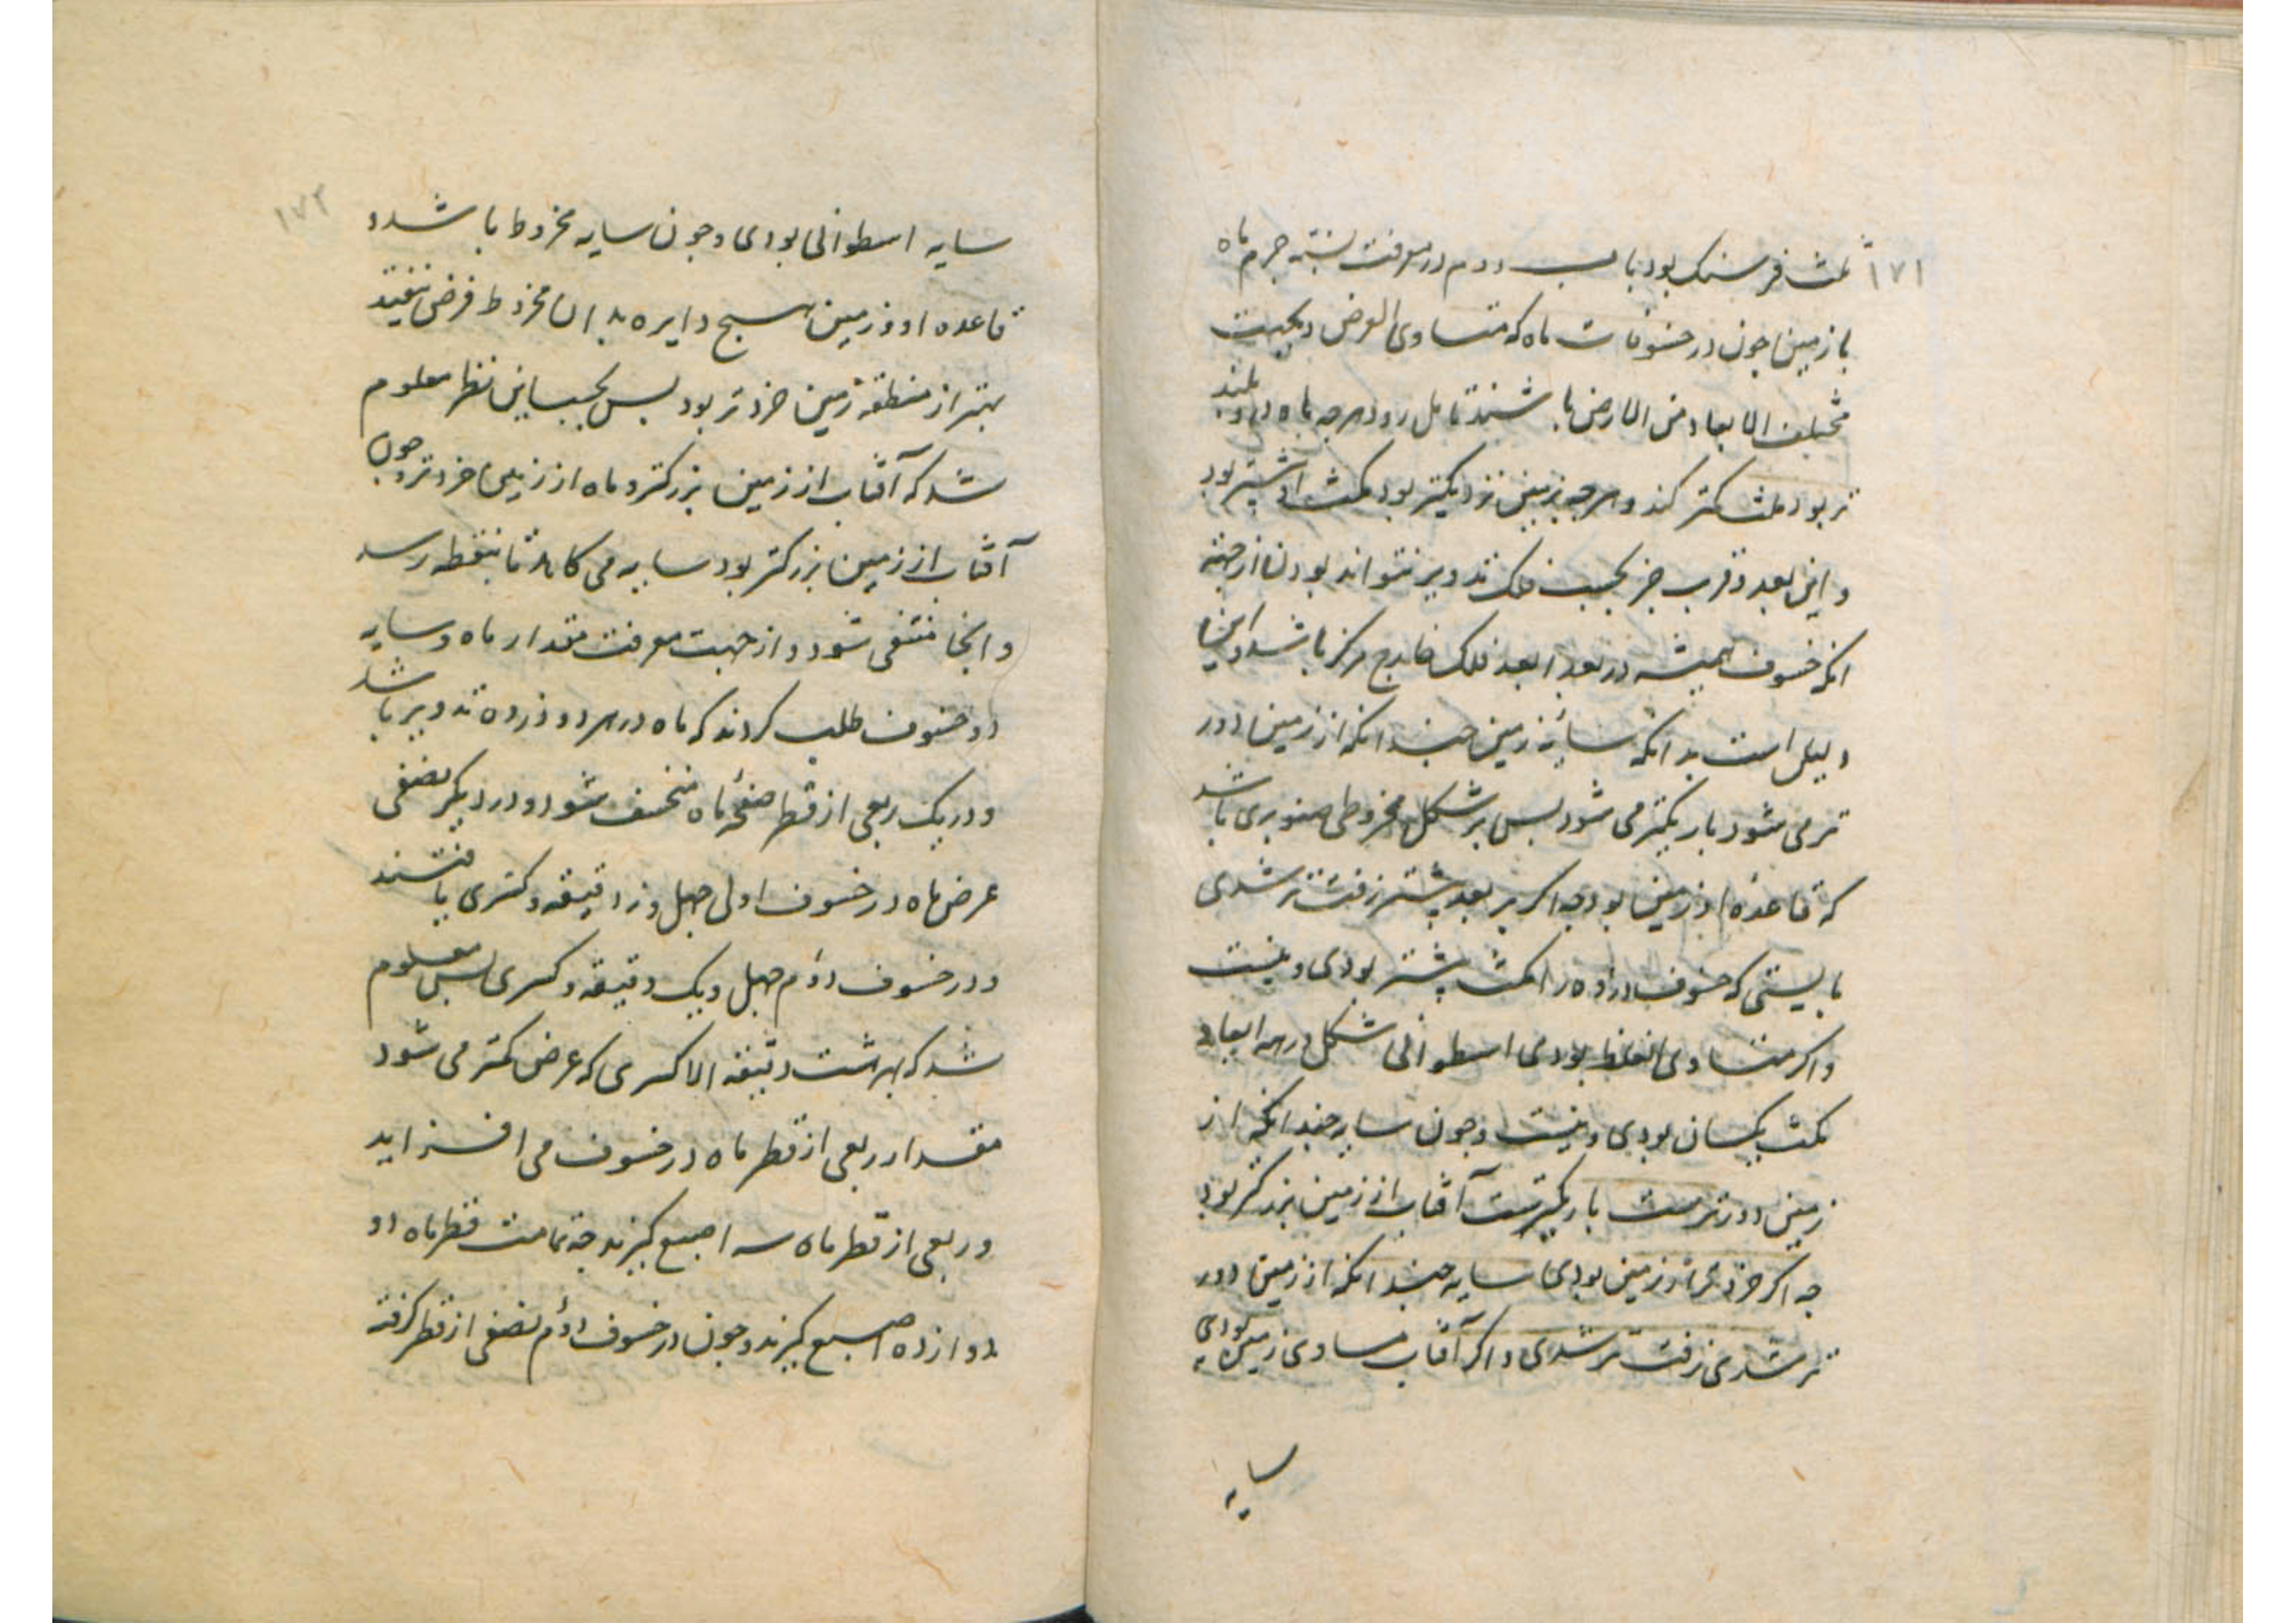 ۱۷۱
ثلث فرسنک بود باب دوم در معرفت نسبة جرم ماه
با زمین جون در خسوفات ماه که متساوی العرض و بجهت
مختلف الابعاد من الارض باشند تامل رود هرجه ماه
تر بود مکث کمتر کند و هرجه بزمین نزدیکتر بود مکث او بیشتر بود
و این بعد و قرب جز بحسب فلک تدویر نتواند بودن از جهة
انکه خسوف همیشه در بعد ابعد فلک خارج مرکز باشد و اینجا
دلیل است بدانکه سایهٔ زمین جندانکه از زمین دور
تر می شود باریکتر می شود بس بر شکل مخروطی صنوبری باشد
که قاعدهٔ او زمین بود جه اکر بر بعد بیشتر زفت تر شدی
بایستی که خسوف در ذروه را مکث بیشتر بودی و نیست
و اکر متساوی الغلظ بودی اسطوانی شکل در همه ابعاد
مکث یکسان بودی و نیست و جون سایه جندانکه از
زمین دورترست باریکترست آفتاب از زمین بزرکتر بود
جه اکر خردتر از زمین بودی سایه جندانکه از زمین دور
تر شدی زفت تر شدی و اکر آفتاب مساوی زمین بودی
سایه
۱۷۲
سایه اسطوانی بودی و جون سایه مخروط باشد و
قاعده او زمین هیج دایره بر ان مخروط فرض نیفتد
بهتر از منطقهٔ زمین خردتر بود بس بحسب این نظر معلوم
شد که آفتاب از زمین بزرکتر و ماه از زمین خردتر و جون
آفتاب از زمین بزرکتر بود سایه می کاهد تا بنقطه رسد
و انجا منتفی شود و از جهت معرفت مقدار ماه و سایه
دو خسوف طلب کردند که ماه در هر دو ذروه تدویر باشد
و در یک ربعی از قطر صفحهٔ ماه منخسف شود و در دیکر نصفی
عرض ماه در خسوف اولی جهل و نه دقیقه و کسری یافتند
و در خسوف دوم جهل و یک دقیقه و کسری بس معلوم
شد که بهر هشت دقیقه الا کسری که عرض کمتر می شود
مقدار ربعی از قطر ماه در خسوف می افزاید
و ربعی از قطر ماه سه اصبع کیرند جه تمامت قطر ماه دو
دوازده اصبع کیرند و جون در خسوف دوم نصفی از قطر کرفته